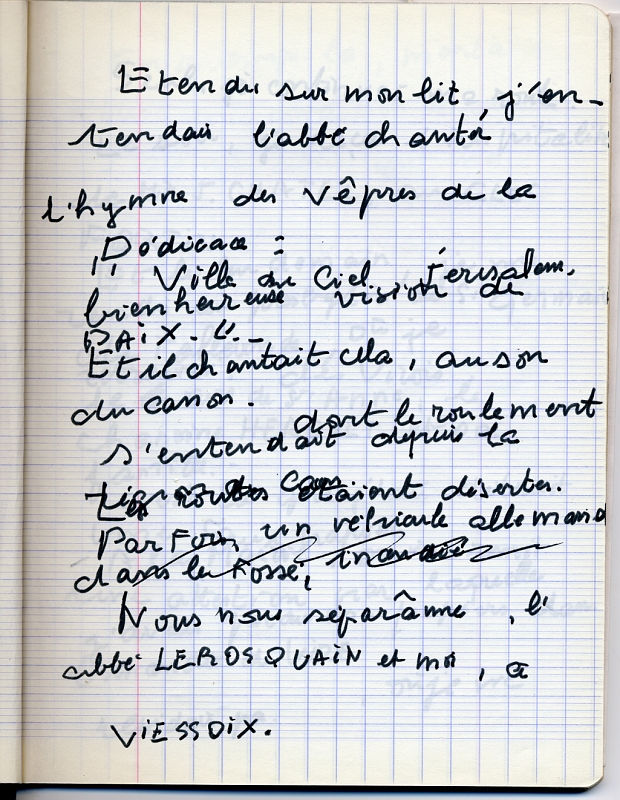 Etendu sur mon lit, j'en-
tendais l'abbé chanter
l'hymne des Vêpres de la
Dédicace :
"Ville du Ciel, Jérusalem,
bienheureuse vision de
PAIX."-
Et il chantait cela, au son
du canon. dont le roulement
s'entendait depuis la
Les routes étaient désertes.
Parfois, un véhicule allemand
dans le fossé,
Nous nous séparâmes, l'
abbé LEROSQUAIN et moi, à
VIESSOIX.